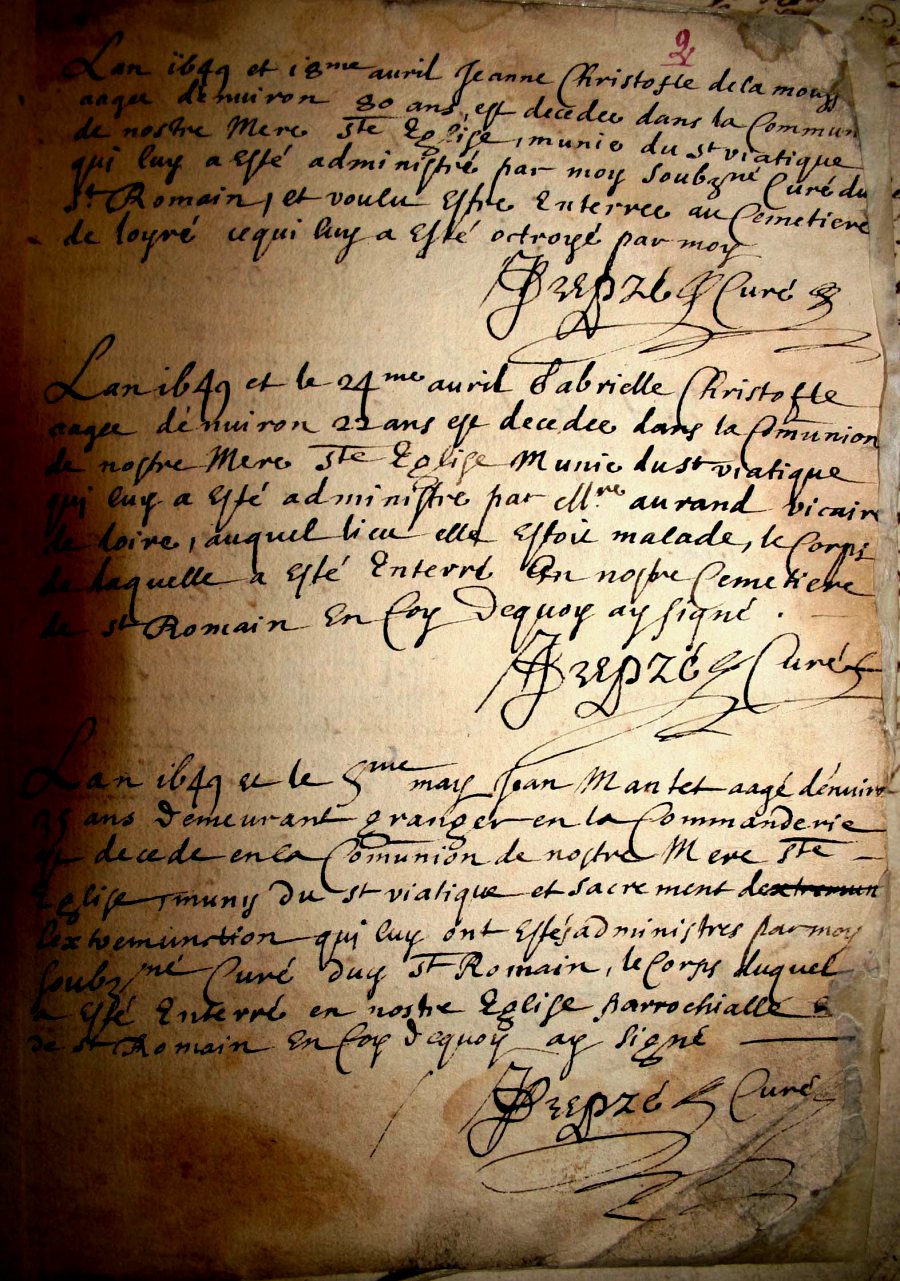 2
Lan i649 et i8me auril Jeanne Christofle dela
aagee dénuiron 80 ans, est decedee dans la Commun
de nostre Mere Ste Eglise, munie du st viatique
qui luy a Esté administré par moy Soubzné Curé du
St Romain, et voulu Estre Enterree au Cemetiere
de loyré cequi luy a Esté octroyé par moy
Curé
Lan i649 et le 24me auril Gabrielle Christofle
aagee dénuiron 22 ans est decedee dans la Comunion
de nostre Mere Ste Eglise Munie du st viatique
qui luy a Esté administre par Mre aurand vicaire
de loire, auquel lieu elle Estoit malade, le Corps
de laquelle a Esté Enterré En nostre Cemetiere
de st Romain En foy Dequoy ay signé.
Curé
Lan i649 et le may Jean Mantet aagé dénuiro
35 ans Demeurant granger en la Commanderie
decede en la Comunion de nostre Mere Ste
Eglise, muny Du st viatique et Sacrement
lextremunction qui luy ont Estés administres par moy
soubzné Curé duy St Romain, le Corps duquel
a Esté Enterré en nostre Eglise parrochialle
de st Romain En foy dequoy ay signé
Curé